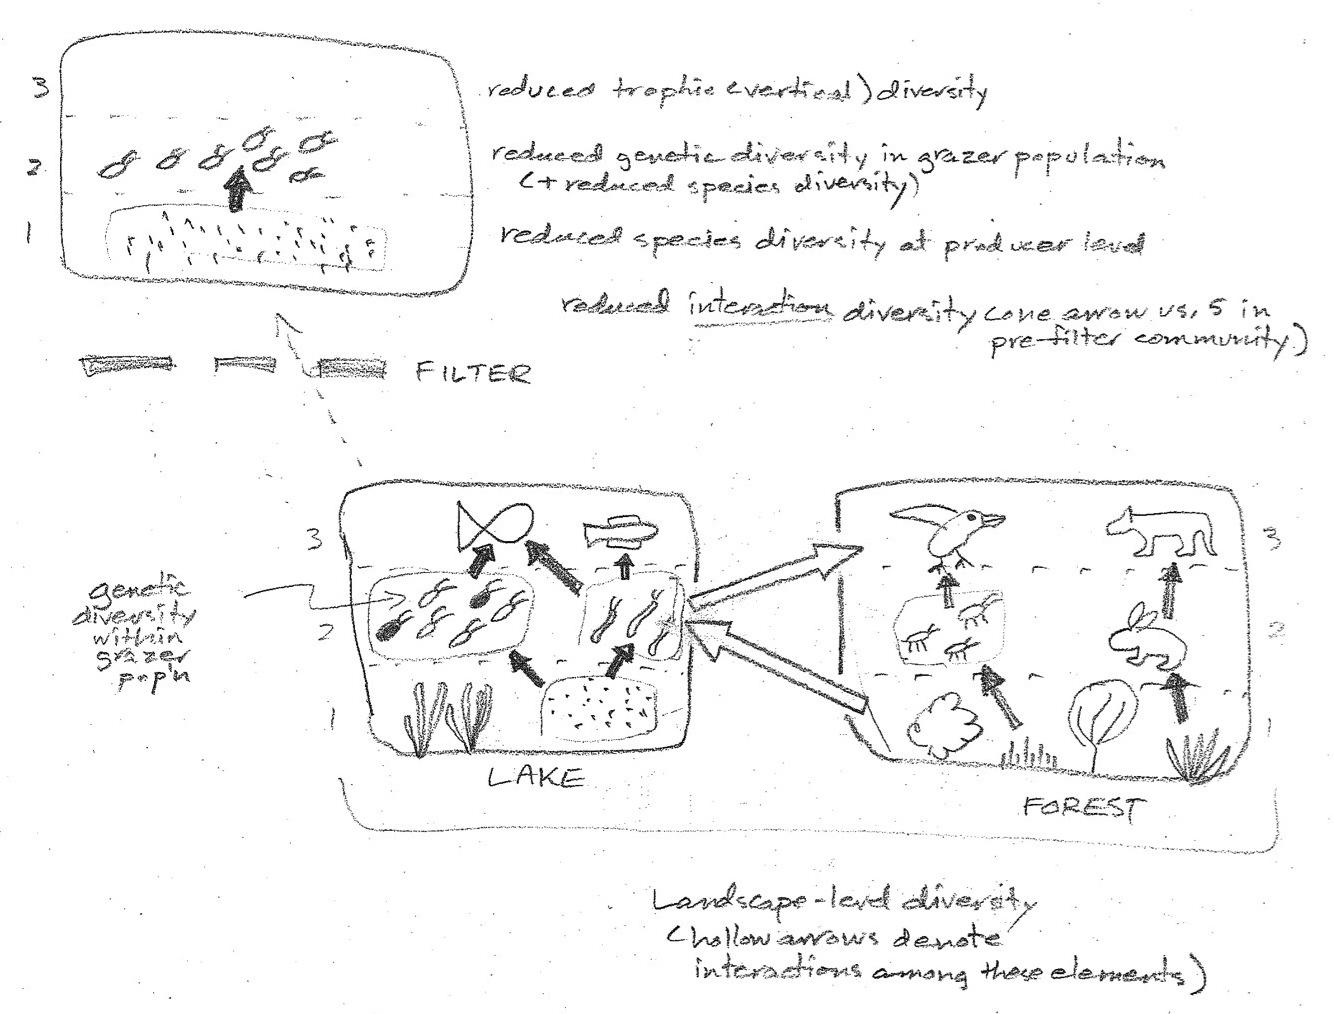 3 reduced trophic (vertical) diversity
2 reduced genetic diversity in grazer population
(+ reduced species diversity)
1 reduced species diversity at producer level
reduced interaction diversity (one arrow vs. 5 in
pre-filter community)
FILTER
3
3
genetic
diversity
within
grazer
pop'n
2
2
1
1
LAKE
FOREST
Landscape-level diversity
(hollow arrows denote
interactions among these elements)